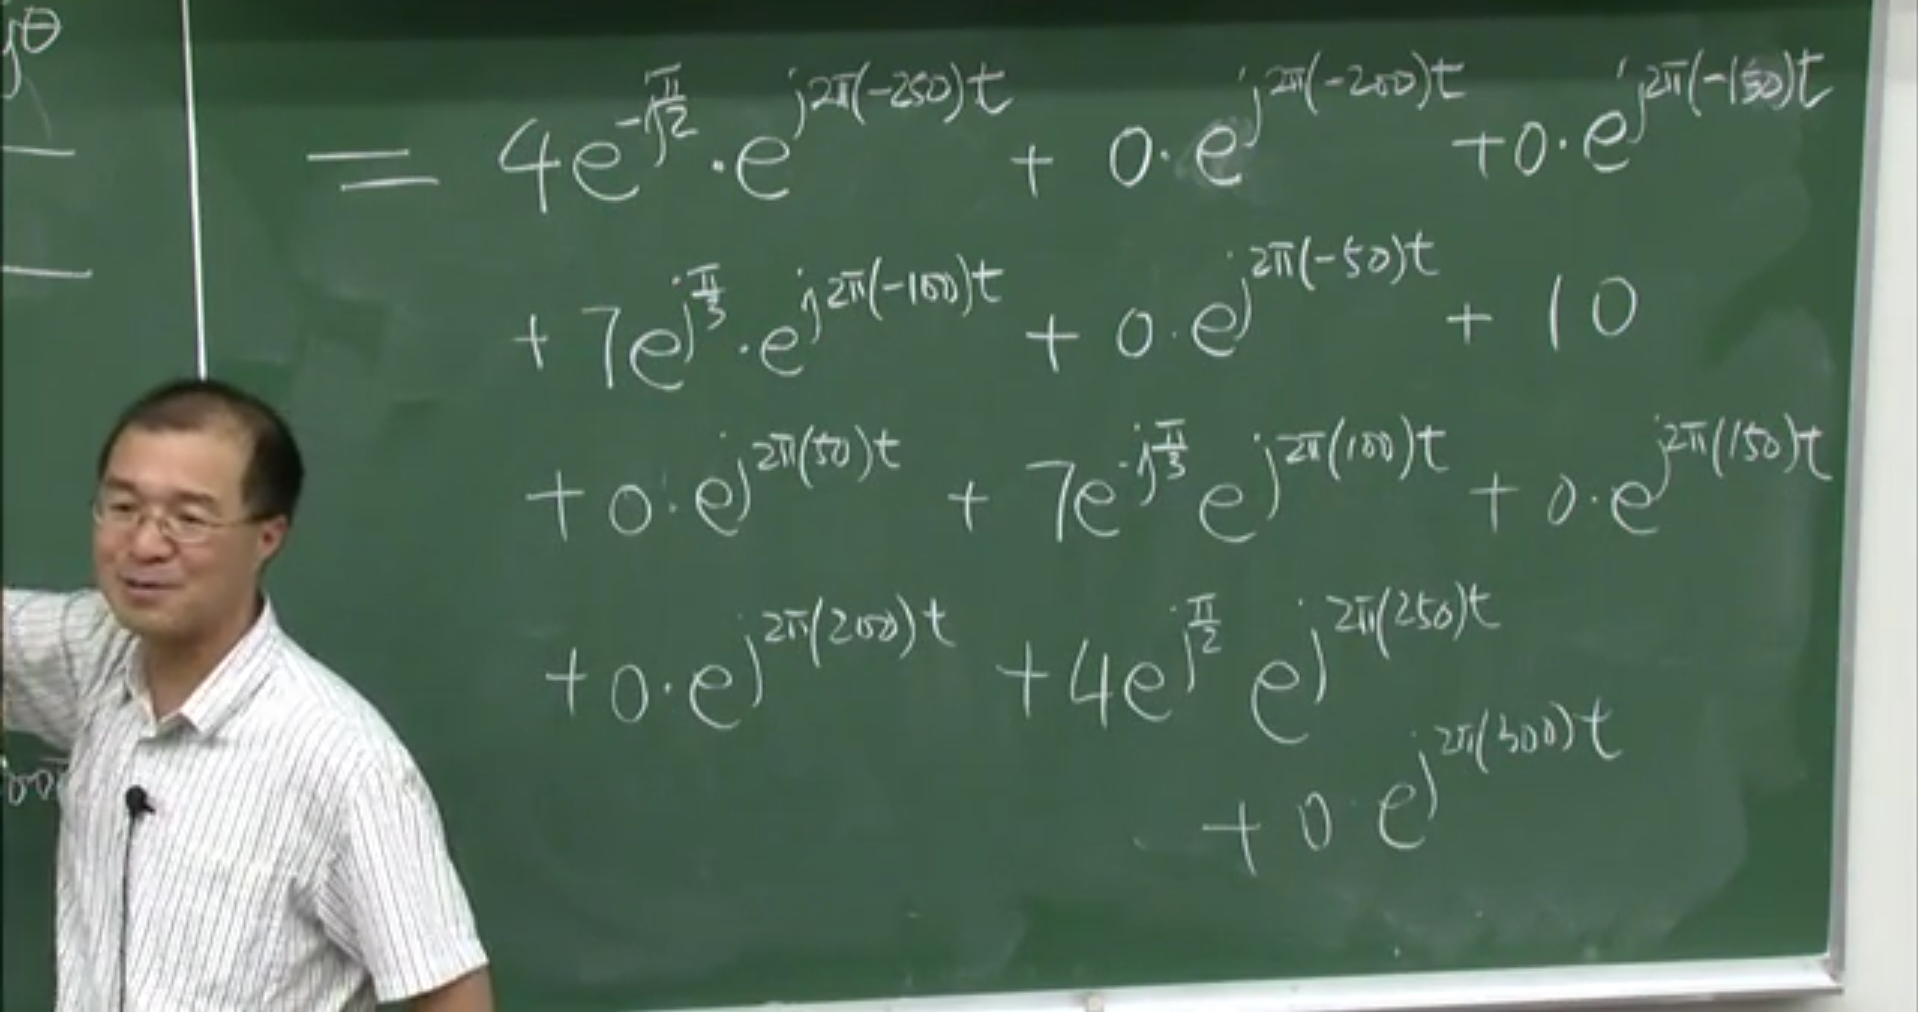 jθ
= 4e^{-j\frac{π}{2}} · e^{j2π(-250)t} + 0 · e^{j2π(-200)t} + 0 · e^{j2π(-150)t}
+ 7e^{j\frac{π}{3}} · e^{j2π(-100)t} + 0 · e^{j2π(-50)t} + 10
+ 0 · e^{j2π(50)t} + 7e^{-j\frac{π}{3}} e^{j2π(100)t} + 0 · e^{j2π(150)t}
+ 0 · e^{j2π(200)t} + 4e^{j\frac{π}{2}} e^{j2π(250)t}
+ 0 · e^{j2π(300)t}